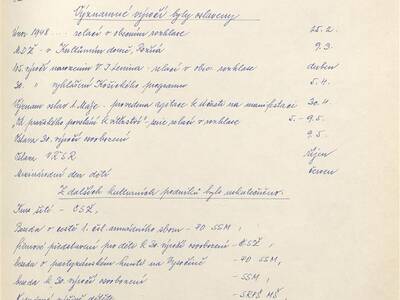 Významné výročí byly oslaveny
Únor 1948 .... relací v obecním rozhlase 25.2.
MDŽ - v Kulturním domě, 9.3.
105. výročí narození V. I. Lenina - relací v obec. rozhlase duben
30. " vyhlášení Košického programu 5.4.
Význam oslav 1. Máje - provedena agitace k účasti na manifestaci 30.4.
"Od pražského povstání k vítězství" - serie relací v rozhlase 5. - 9.5.
Oslava 30. výročí osvobození 9.5.
Oslava VŘSR říjen
Mezinárodní den dětí červen
Z dalších kulturních podniků bylo uskutečněno:
Kurs šití - ČSŽ,
Beseda o cestě 1. čsl. armádního sboru - PO SSM,
filmové představení pro děti k 30. výročí osvobození - ČSŽ,
beseda o partyzánském hnutí na Vysočině - PO SSM,
beseda k 30. výročí osvobození - SSM,
dětí - SRPŠ MŠ